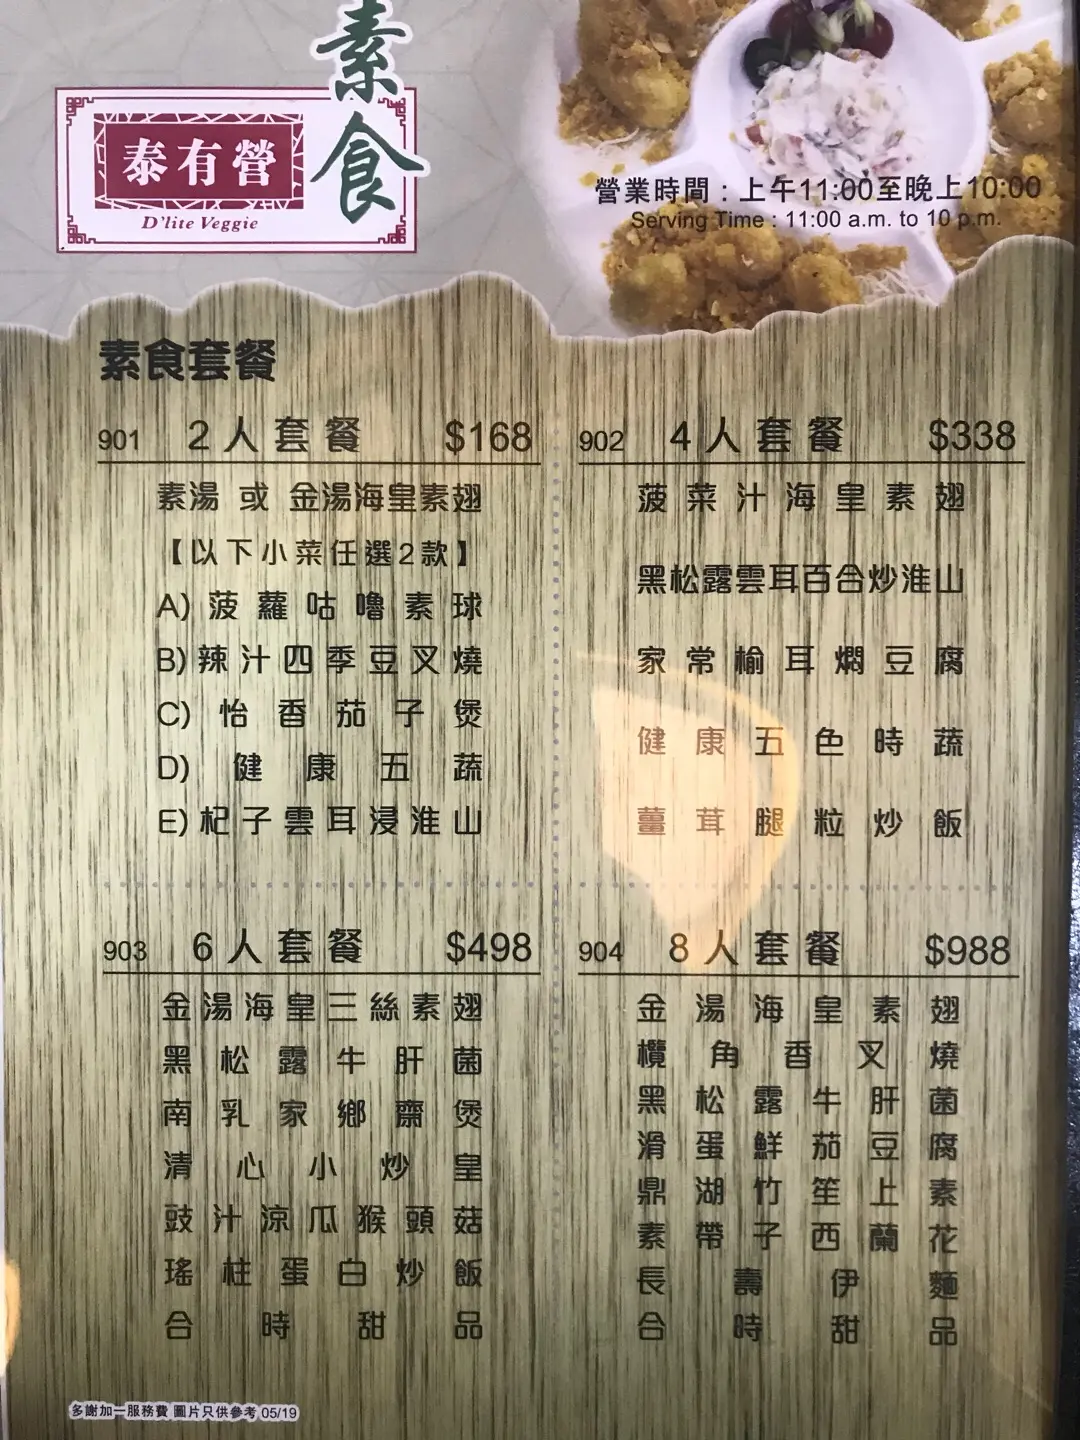 素食
泰有營
D'lite Veggie
營業時間：上午11:00至晚上10:00
Serving Time : 11:00 a.m. to 10 p.m.
素食套餐
901 2人套餐 $168
素湯 或 金湯海皇素翅
【以下小菜任選2款】
A) 菠蘿咕嚕素球
B) 辣汁四季豆叉燒
C) 怡香茄子煲
D) 健康五蔬
E) 杞子雲耳浸淮山
902 4人套餐 $338
菠菜汁海皇素翅
黑松露雲耳百合炒淮山
家常榆耳燜豆腐
健康五色時蔬
薑茸腿粒炒飯
903 6人套餐 $498
金湯海皇三絲素翅
黑松露牛肝菌
南乳家鄉齋煲
清心小炒皇
豉汁涼瓜猴頭菇
瑤柱蛋白炒飯
合時甜品
904 8人套餐 $988
金湯海皇素翅
欖角香叉燒
黑松露牛肝菌
滑蛋鮮茄豆腐
鼎湖竹笙上素
素帶子西蘭花
長壽伊麵
合時甜品
多謝加一服務費 圖片只供參考 05/19